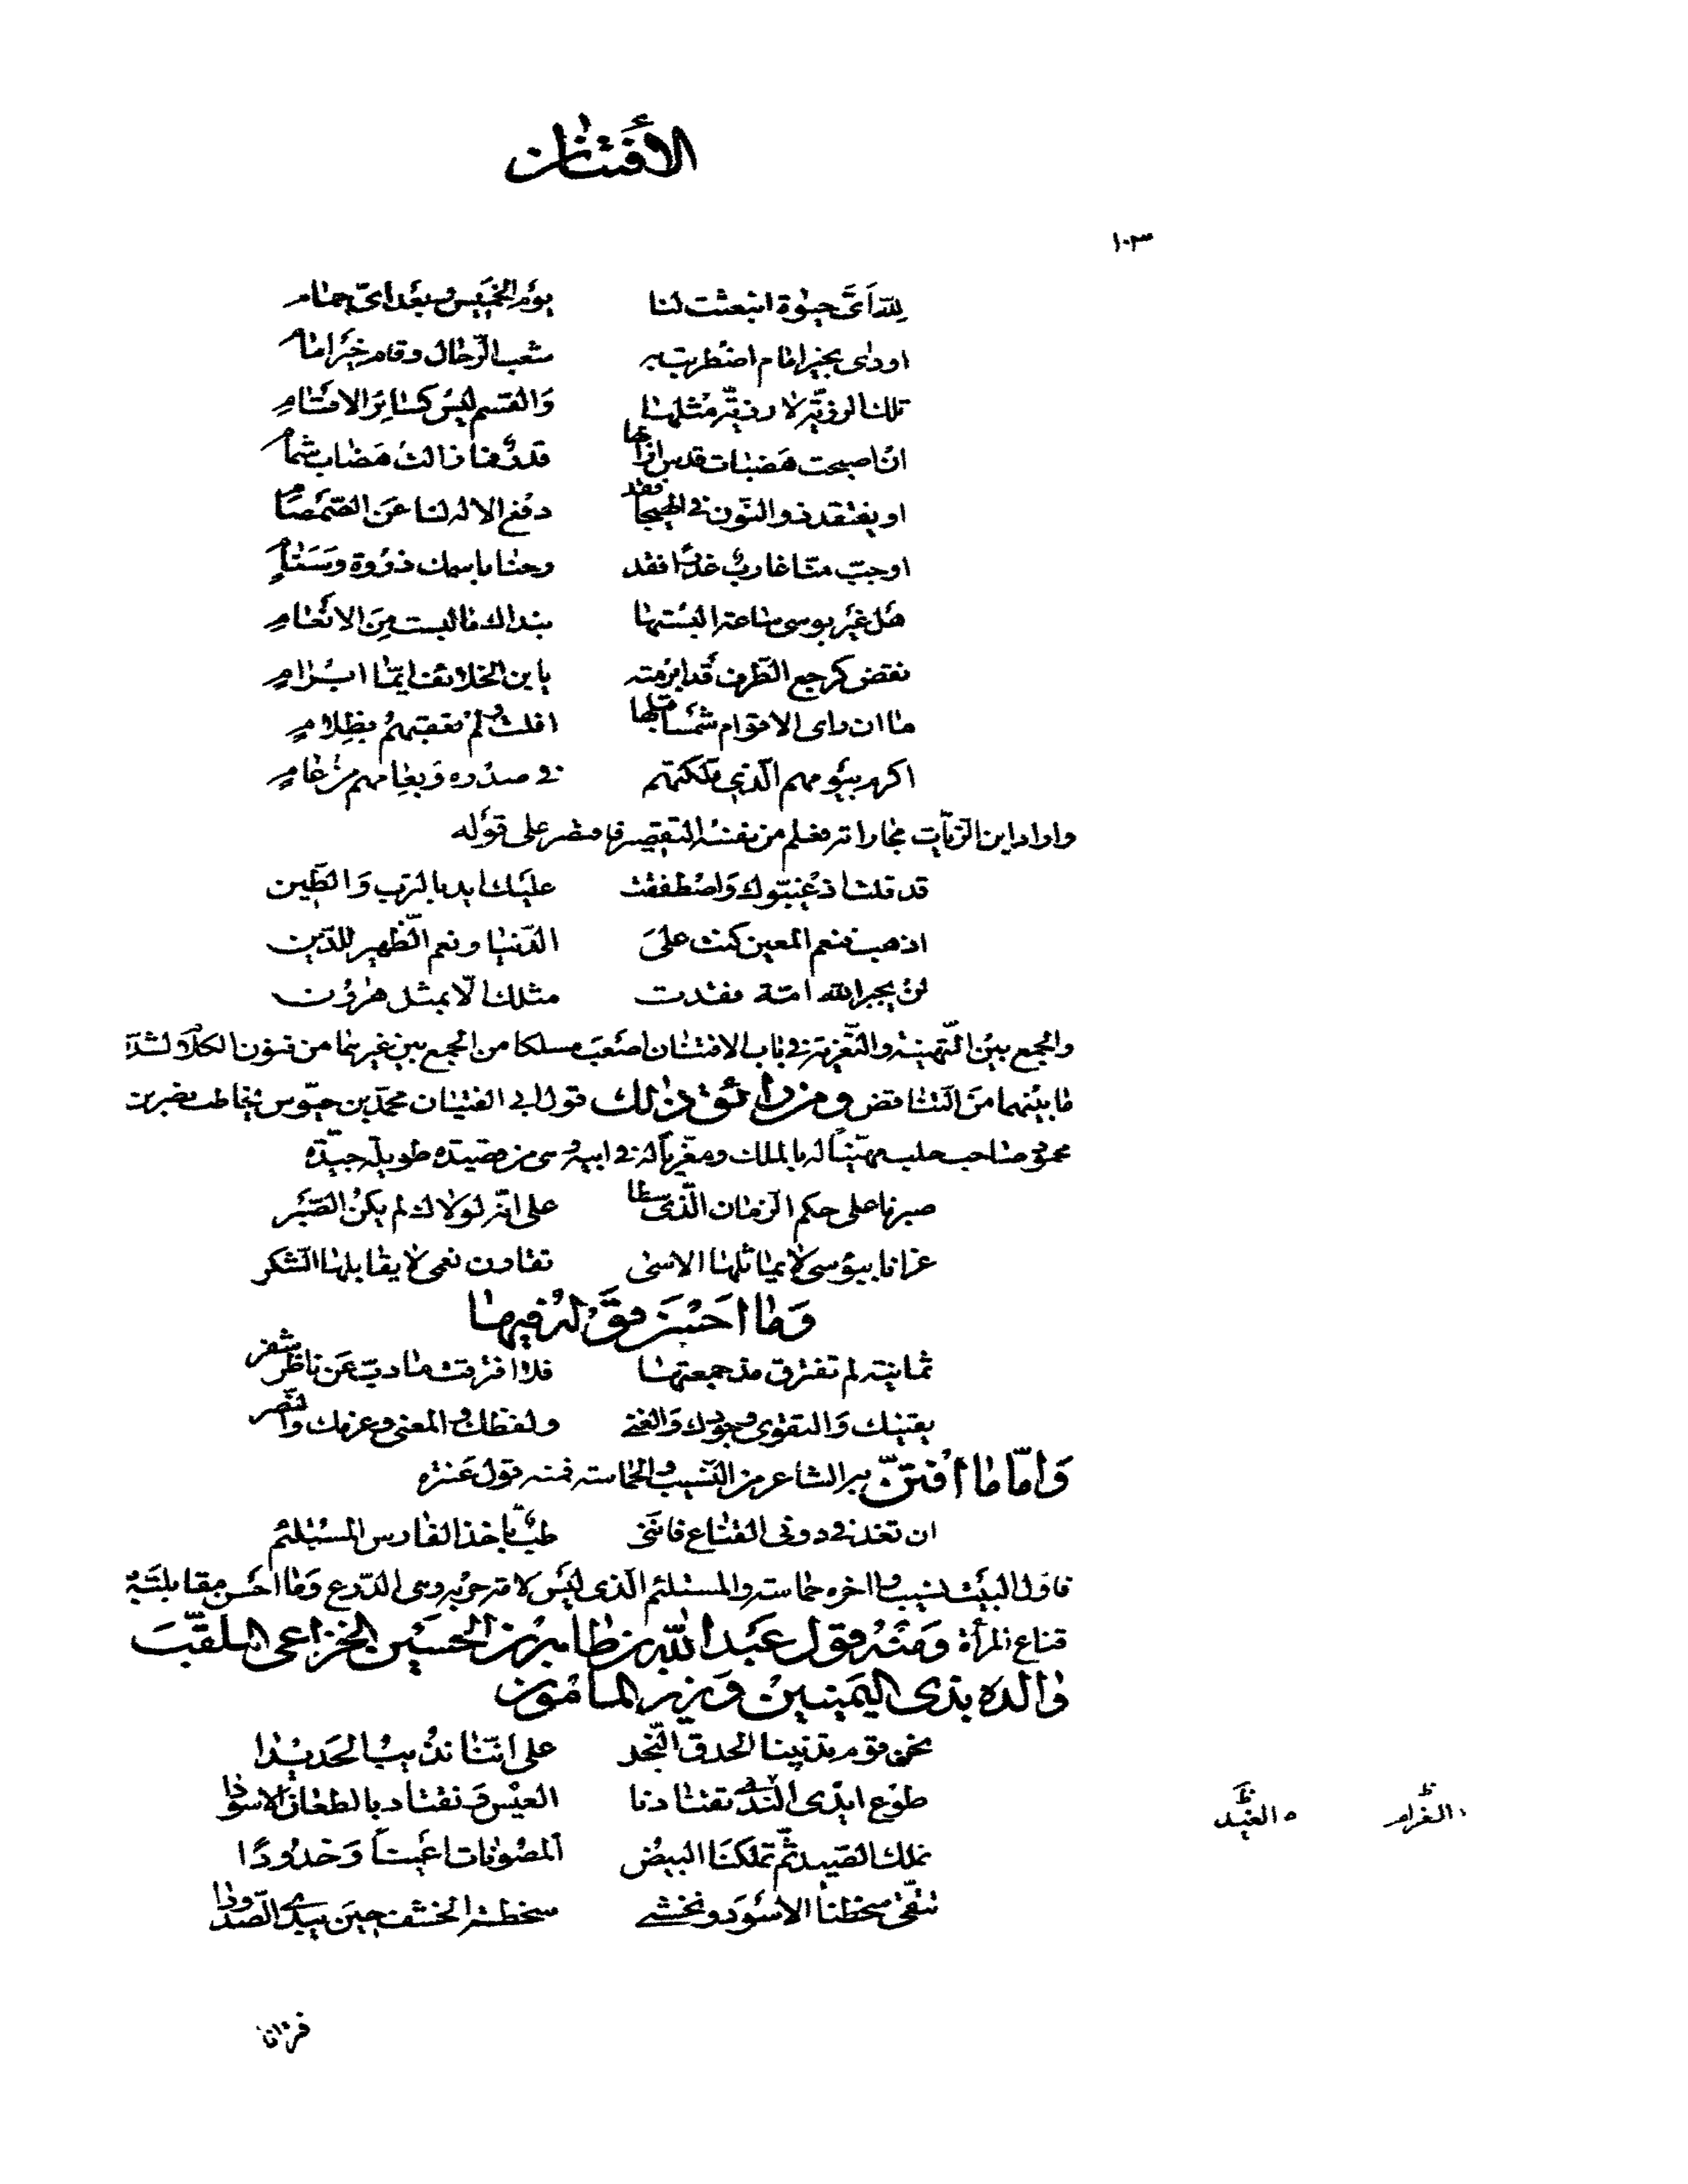 الأفتنان
١٠٣
لله اىّ حيوة انبعثت لنا يوم الخميس وبعد اىّ حمام
اودى بخير امام اضطربت به شعب الرّحال وقام خير امام
تلك الرزيّة لا رزيّة مثلها والقسم ليس كسائر الاقسام
ان اصبحت هضبات قدس ازالها قدر فما زالت هضاب شمام
او يفتقد ذو النّون فى الهيجا فقد دفع الاله لنا عن الصّمصام
او جبّ منّا غارب غدًا فقد رحنا باسمك ذروة وسنام
هل غير بوسى ساعة البستها بنداك ما لبست من الانعام
نقض كرجع الطّرف قد ابرمته يا بن الخلائف ايّما ابرام
ما ان راى الاقوام شمسا قبلها افلت ولم تعقبهم بظلام
اكرم بيومهم الّذى ملّكتهم فى صدره وبعامهم من عام
واراد ابن الزيّات مجاراته فعلم من نفسه التقصير فاقتصر على قوله
قد قلت اذ غيّبوك واصطفقت عليك ايد بالترب والطّين
اذهب فنعم المعين كنت على الدّنيا ونعم الظّهير للدّين
لن يجبر الله امّة فقدت مثلك الّا بمثل هرون
والجمع بين التّهنية والتّعزية فى باب الافتنان اصعب مسلكا من الجمع بين غيرهما من فنون الكلام لشدّة
ما بينهما من التّناقض ومن رائق ذلك قول ابى الفتيان محمّد بن حيّوس يخاطب نصر بن
محمود صاحب حلب مهنّيًا له بالملك ومعزّيًا له فى ابيه وهى من قصيدة طويلة جيّدة
صبرنا على حكم الزمان الّذى سطا على انّه لولاك لم يكن الصّبر
غزانا ببؤسى لا يماثلها الاسى تقارن نعمى لا يقابلها الشّكر
وما احسن قوله فيها
ثمانية لم تفترق مذ جمعتها فلا افترقت ما دبّ عن ناظر شفر
يقينك والتقوى وجودك والغنى ولفظك والمعنى وعزمك والنّصر
وامّا ما افتنّ به الشاعر من النّسيب والحماسة فمنه قول عنترة
ان تغدفى دونى القناع فانّنى طبّ باخذ الفارس المستلئم
فاوّل البيت نسيب واخره حماسة والمستلئم الّذى لبس لامة حربه وهى الدّرع وما احسن مقابلته
قناع المرأة ومنه قول عبد الله بن طاهر بن الحسين الخزاعى الملقّب
والده بذى اليمينين وزير المأمون
نحن قوم تذيبنا الحدق النّجل على انّنا نذيب الحديدا
طوع ايدى النّدى تقتادنا العيس ونقتاد بالطعان الاسودا
نملك الصّيد ثمّ تملكنا البيض المصونات اعينًا وخدودًا
تتّقى سخطنا الاسود ونخشى سخطة الخشف حين يبدى الصّدودا
الغرام ظ
الغيد ظ